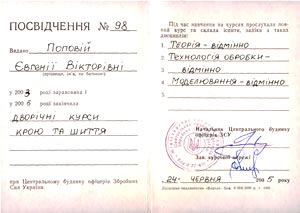 ПОСВІДЧЕННЯ № 98
Видано Поповій
Євгенії Вікторівні
(прізвище, ім'я, по батькові)
у 2003 році зарахована і
у 2005 році закінчила
дворічні курси
крою та шиття
при Центральному будинку офіцерів Збройних
Сил України.
Під час навчання на курсах прослухала повний
курс та склала іспити, заліки з таких
дисциплін:
1. Теорія - відмінно
2. Технологія обробки -
- відмінно
3. Моделювання - відмінно
Начальник Центрального будинку
офіцерів ЗСУ
Зав. курсової мережі
„24" червня 2005 року